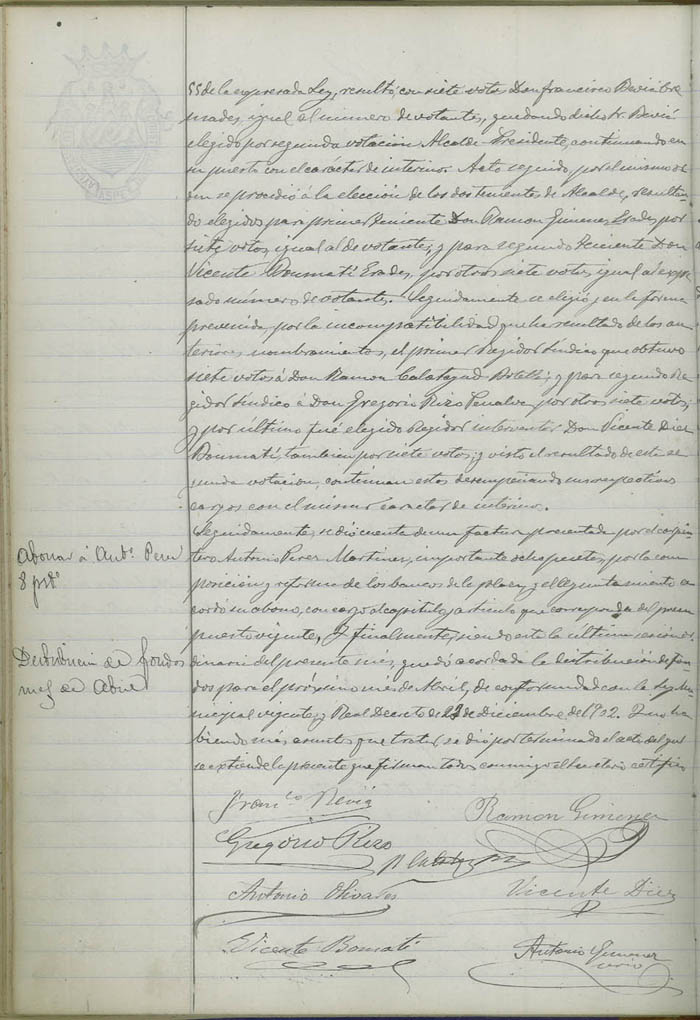 55 de la expresada Ley, resultó con siete votos Don Francisco Beviá
igual al número de votantes, quedando dicho Sr. Beviá
elegido por segunda votación Alcalde-Presidente, continuando en
su puesto con el carácter de interino. Acto seguido, por el mismo or
den se procedió á la elección de los dos tenientes de Alcalde, resultan
do elegidos para primer teniente Don Ramon Gimenez por
siete votos, igual al de votantes; y para segundo teniente Don
Vicente Boumatí por otros siete votos, igual al expre
sado número de votantes. Seguidamente se eligió, en la forma
prevenida por la incompatibilidad que ha resultado de los an
teriores nombramientos, el primer Regidor Sindico que obtuvo
siete votos á Don Ramon Calatayud Botella; y para segundo Re
gidor Sindico á Don Gregorio Rizo Penalva por otros siete votos;
y por último fué elegido Regidor interventor Don Vicente Diez
Boumatí, tambien por siete votos; y visto el resultado de esta se
gunda votacion, continúan estos desempeñando sus respectivos
cargos con el mismo caracter de interino.
Seguidamente, se dió cuenta de una factura presentada por el carpin
tero Antonio Perez Martinez, importante ocho pesetas, por la com
posicion y reforma de los bancos de la plaza, y el Ayuntamiento a
cordó su abono, con cargo al capitulo y articulo que corresponda del presu
puesto vigente. Y finalmente, siendo esta la ultima sesion or
dinaria del presente mes, quedó acordada la distribución de fon
dos para el próximo mes de Abril, de conformidad con la Ley Mu
nicipal vigente y Real Decreto de 23 de Diciembre de 1902. Y no ha
biendo más asuntos que tratar, se dió por terminado el acto del que
se extiende la presente que firman todos conmigo el Secretario certifico
Abonar á Antº. Perez
8 ptsº
Distribucion de fondos
mes de Abril
Francco Beviá
Ramon Gimenez
Gregorio Rizo
R Calatayud
Antonio Olivares
Vicente Diez
Vicente Bomati
Antonio Gimenez